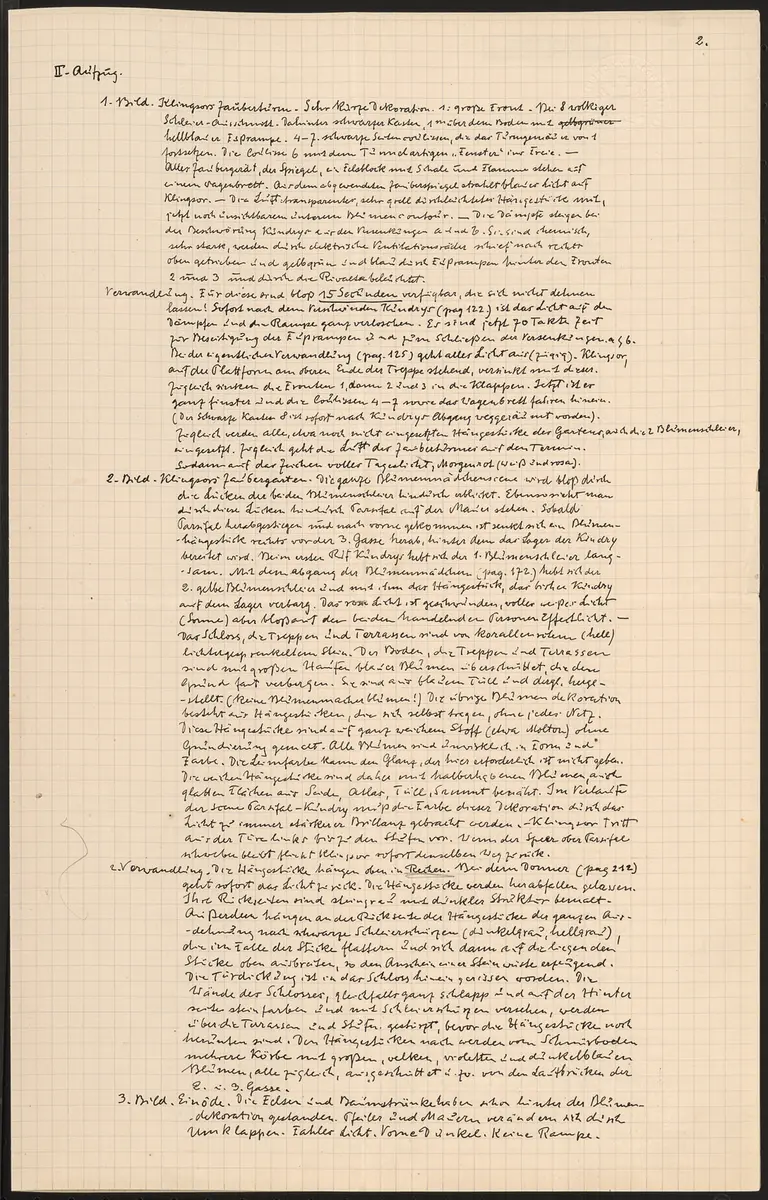 2.
II. Aufzug.
1. Bild. Klingsors Zauberturm. Sehr kurze Dekoration. 1. große Front. Bei 8 volkiger
Schleier-Ausschnitt. Dahinter schwarzer Kasten, 1 m über dem Boden mit gelbgrüner
hellblauer Fußrampe. 4-7. schwarze Seitencoulissen, die das Turmgemäuer von 1
fortsetzen. Die Coulisse 6 mit dem Tunnelartigen „Fenster" ins Freie. —
Alles Zaubergerät, der Spiegel, ein Felsblock mit Schale und Flamme stehen auf
einem Wagenbrett. Aus dem abgewendten Zauberspiegel strahlt blaues Licht auf
Klingsor. — Die Luft transparenter, sehr grell durchleuchteter Hängestücke mit,
jetzt noch unsichtbarem unterem Blumencontour. — Die Dämpfe steigen bei
der Beschwörung Kundrys aus den Versenkungen a und b. Sie sind chemisch,
sehr stark, werden durch elektrische Ventilationsräder schief nach rechts
oben getrieben und gelbgrün und blau durch Fußrampen hinter den Fronten
2 und 3 und durch die Rivalta beleuchtet.
Verwandlung. Für diese sind bloß 15 Secunden verfügbar, die sich nicht dehnen
lassen! Sofort nach dem Verschwinden Kundrys (pag 122) ist das Licht auf den
Dämpfen und die Rampe ganz verloschen. Es sind jetzt 70 Takte Zeit
für Beseitigung der Fußrampen und zum Schließen der Versenkungen. a & b.
Bei der eigentlichen Verwandlung (pag. 125) geht alles Licht aus (zügig). Klingsor,
auf der Plattform am oberen Ende der Treppe stehend, versinkt mit dieser.
Zugleich sinken die Fronten 1, dann 2 und 3 in die Klappen. Jetzt ist es
ganz finster und die Coulissen 4-7 sowie das Wagenbrett fahren hinein.
(Der schwarze Kasten 8 ist sofort nach Kundrys Abgang weggeräumt worden).
Zugleich werden alle, etwa noch nicht eingesetzten Hängestücke des Gartens, auch die 2 Blumenschleier,
eingesetzt. Zugleich geht die Luft des Zauberturmes auf den Termin.
Sodann auf das Zeichen volles Tageslicht, Morgenrot (weiß und rosa).
2. Bild. Klingsors Zaubergarten. Die ganze Blumenmädchenscene wird bloß durch
die Lücken der beiden Blumenschleier hindurch erblickt. Ebenso sieht man
durch diese Lücken hindurch Parsifal auf der Mauer stehen. Sobald
Parsifal herabgestiegen und nach vorne gekommen ist senkt sich ein Blumen-
-hängestück rechts vor der 3. Gasse herab, hinter dem das Lager der Kundry
bereitet wird. Beim ersten Ruf Kundrys hebt sich der 1. Blumenschleier lang-
-sam. Mit dem Abgang der Blumenmädchen (pag. 172) hebt sich der
2. gelbe Blumenschleier und mit ihm das Hängestück, das bisher Kundry
auf dem Lager verbarg. Das rosa Licht ist geschwunden, volles weißes Licht
(Sonne) aber bloß auf den beiden handelnden Personen Effectlicht. —
Das Schloss, die Treppen und Terrassen sind von korallenrotem (hell)
lichtergesprenkeltem Stein. Der Boden, die Treppen und Terrassen
sind mit großen Haufen blauer Blumen überschüttet, die den
Grund fast verbergen. Sie sind aus blauem Tüll und dergl. herge-
-stellt. (keine Blumenmacherblumen!) Die übrige Blumendekoration
besteht aus Hängestücken, die sich selbst tragen, ohne jedes Netz.
Diese Hängestücke sind auf ganz weichem Stoff (etwa Molton) ohne
Grundierung gemalt. Alle Blumen sind unwirklich in Form und
Farbe. Die Leimfarbe kann den Glanz, der hier erforderlich ist nicht geben.
Die weichen Hängestücke sind daher mit halberhabenen Blumen, auch
glatten Flächen aus Seide, Atlas, Tüll, Sammt benäht. Im Verlaufe
der Scene Parsifal-Kundry muß die Farbe dieser Dekoration durch das
Licht zu immer stärkerer Brillanz gebracht werden. — Klingsor tritt
aus der Türe links bis zu den Stufen vor. Wenn der Speer ober Parsifal
schweben bleibt flieht Klingsor sofort denselben Weg zurück.
2. Verwandlung. Die Hängestücke hängen oben in Reihen. Bei dem Donner (pag 212)
geht sofort das Licht zurück. Die Hängestücke werden herabfallen gelassen.
Ihre Rückseiten sind steingrau mit dunkler Struktur bemalt.
Außerdem hängen an der Rückseite der Hängestücke der ganzen Aus-
-dehnung nach schwarze Schleierschürzen (dunkelgrau, hellgrau),
die im Falle der Stücke flattern und sich dann auf die liegenden
Stücke oben ausbreiten, so den Anschein einer Steinwüste erzeugend.
Die Türdickung ist in das Schloss hinein gerissen worden. Die
Wände des Schlosses, gleichfalls ganz schlapp und auf der Hinter
seite steinfarben und mit Schleierschürzen versehen, werden
über die Terrassen und Stufen gestürzt, bevor die Hängestücke noch
herunten sind. Den Hängestücken nach werden vom Schnürboden
mehrere Körbe mit großen, welken, violetten und dunkelblauen
Blumen, alle zugleich, ausgeschüttet u. zw. von den Laufbrücken der
2. u. 3. Gasse.
3. Bild. Einöde. Die Felsen und Baumstrünke haben schon hinter der Blumen-
-dekoration gestanden. Pfeiler und Mauern verändern sich durch
Umklappen. Fahles Licht. Vorne Dunkel. Keine Rampe.